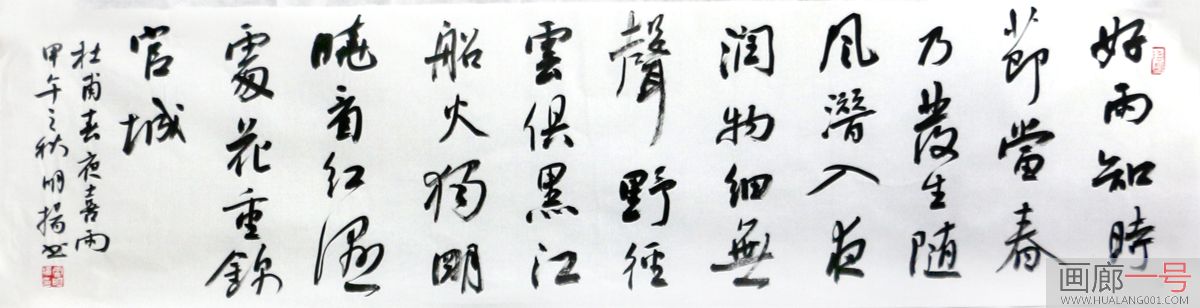 好雨知時
節當春
乃發生随
風潛入夜
潤物細無
聲野徑
雲俱黑江
船火獨明
曉看紅濕
處花重錦
官城
杜甫春夜喜雨
甲午之秋明揚书
画廊一号
WWW.HUALANG001.COM